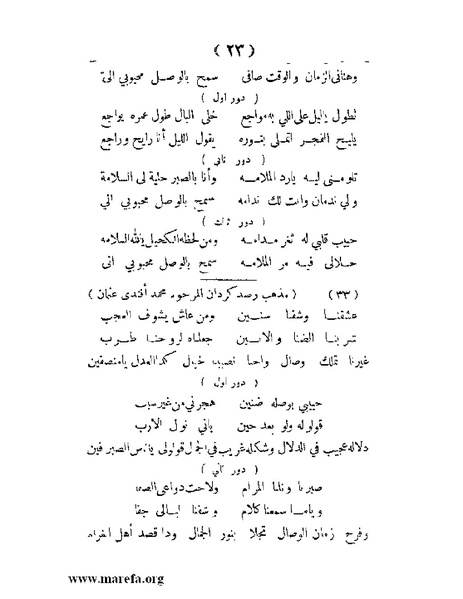 ( ٢٣ )
وهناني الزمان والوقت صافي سمح بالوصل محبوبي الي
( دور اول )
تطول ياليل على اللي به واجع خلى البال طول عمره يواجع
يليح الفجر اتملى بنوره يقول الليل أنا رايح وراجع
( دور ثاني )
تلومني ليه يارد الملامه وأنا بالصبر حلية لي السلامة
ولي ندمان وانت لك ندامه سمح بالوصل محبوبي الي
( دور ثالث )
حبيب قلبي له ثغر مدامه ومن لحظه الكحيل يالله السلامه
حلالى فيه مر الملامه سمح بالوصل محبوبي انى
( ٣٣ ) ( مذهب رصد كردان المرحوم محمد أفندى عثمان )
عشقنا وشفنا سنين ومن عاش يشوف العجب
شربنا الضنا والانين جعلناه لروحنا طرب
غيرنا تملك وصال واحنا نصيبنا خيال كده العدل يامنصفين
( دور اول )
حبيبي بوصله ضنين هجرني من غير سبب
قولوله ولو بعد حين ياني نول الارب
دلاله عجيب في الدلال وشكله غريب في الجمال قولولى يانس الصبر فين
( دور ثاني )
صبرنا ونلنا المرام ولاحت دواعى الصفا
وياما سمعنا كلام وشفنا ليالى جفا
وفرح زمان الوصال تجلا بنور الجمال ودا قصد أهل الغرام
www.marefa.org